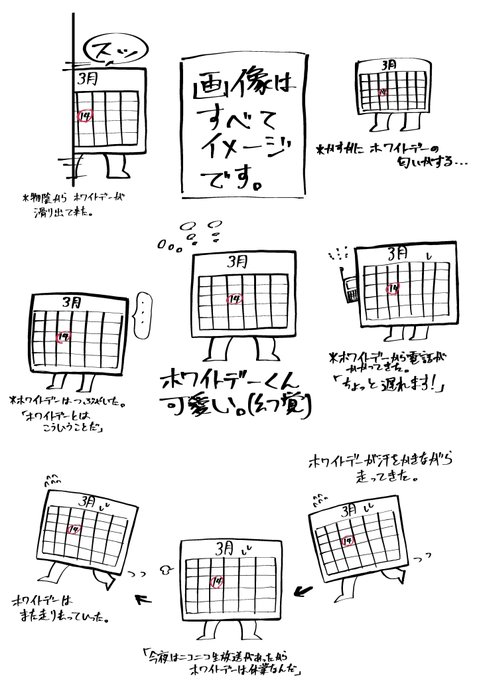 スッ
3月
14
※物陰から ホワイトデーが
滑り出てきた。
画像は
すべて
イメージ
です。
3月
14
※かすかに ホワイトデーの
匂いがする…
3月
14
…
※ホワイトデーはつぶやいた。
「ホワイトデーとは
こういうことだ」
3月
14
ホワイトデーくん
可愛い。(幻覚)
3月
14
※ホワイトデーから電話が
かかってきた。
「ちょっと遅れます!」
ホワイトデーが汗をかきながら
走ってきた。
3月
14
3月
14
「今夜はニコニコ生放送があったから
ホワイトデーは休業なんだ」
3月
14
ホワイトデーは
また走りさっていった。